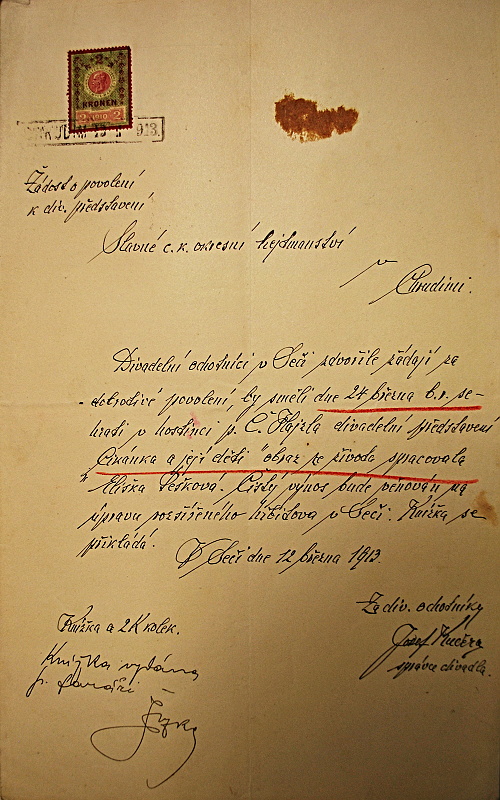 2
KRONEN
2 1910 2
913.
Žádost o povolení
k div. představení
Slavné c. k. okresní hejtmanství
v
Chrudimi.
Divadelní ochotníci v Seči zdvořile žádají za
dobrodivé povolení, by směli dne 24 března b. r. se-
hrati v hostinci p. Č. Hajzla divadelní představení
"Cikánka a její děti" obraz ze života spracovala
Eliška Pešková. Čistý výnos bude věnován na
úpravu rozšířeného hřbitova v Seči. Knížka se
přikládá.
V Seči dne 12 března 1913.
Za div. ochotníky
Josef Kučera
správce divadla.
Knížka a 2 K kolek.
Knížka vydána
p.